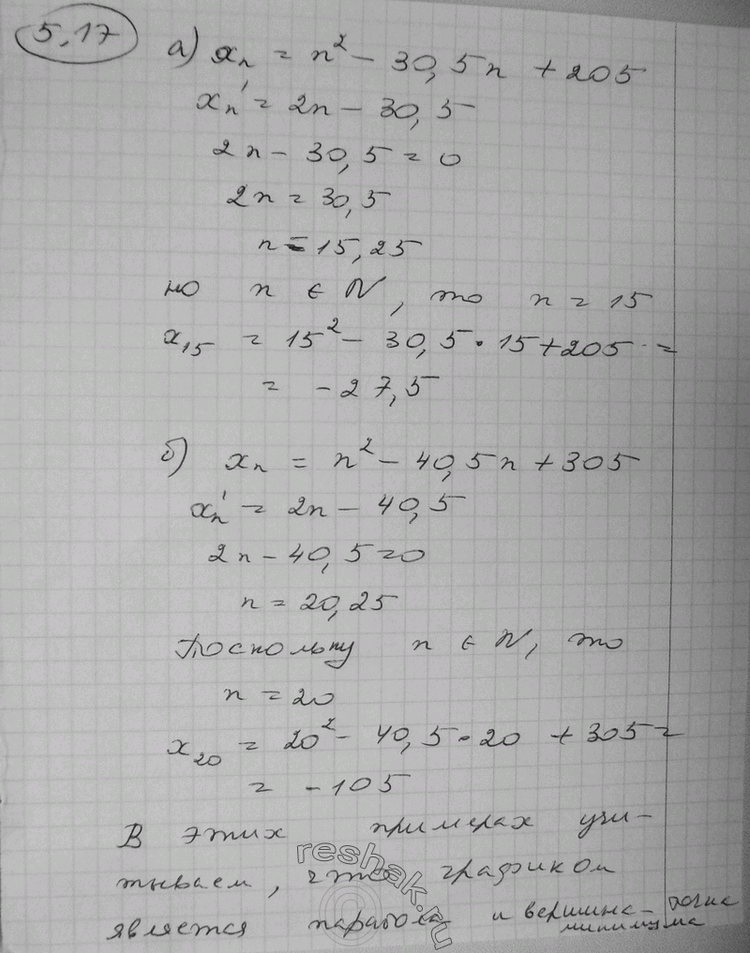 5.17
а) xₙ = n² - 30,5n + 205
xₙ' = 2n - 30,5
2n - 30,5 = 0
2n = 30,5
n = 15,25
но n ∈ N, то n = 15
x₁₅ = 15² - 30,5 · 15 + 205 =
= - 27,5
б) xₙ = n² - 40,5n + 305
xₙ' = 2n - 40,5
2n - 40,5 = 0
n = 20,25
Поскольку n ∈ N, то
n = 20
x₂₀ = 20² - 40,5 · 20 + 305 =
= - 105
В этих примерах учи-
тываем, что графиком
является парабола и вершина - точка
минимума
reshak.ru